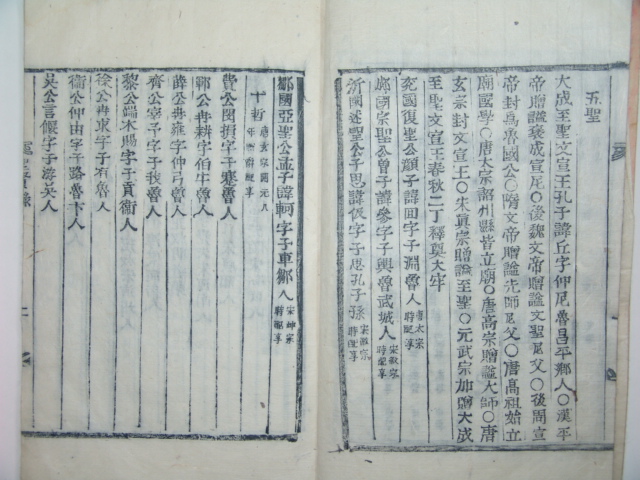 五聖
大成至聖文宣王孔子諱丘字仲尼魯昌平鄕人〇漢平
帝贈謚褒成宣尼〇後魏文帝贈謚文聖尼父〇後周宣
帝封爲魯國公〇隋文帝贈謚先師尼父〇唐高祖始立
廟國學〇唐太宗詔州縣皆立廟〇唐高宗贈謚太師〇唐
玄宗封文宣王〇宋眞宗贈謚至聖〇元武宗加贈大成
至聖文宣王春秋二丁釋奠大牢
兗國復聖公顔子諱回字子淵魯人 唐太宗時配享
郕國宗聖公曾子諱參字子輿魯武城人 宋度宗時配享
沂國述聖公子思諱伋字子思孔子孫 宋徽宗時配享
鄒國亞聖公孟子諱軻字子車鄒人 宋神宗時配享
十哲 唐玄宗開元八年從配享
費公閔損字子騫魯人
鄆公冉耕字伯牛魯人
薛公冉雍字仲弓魯人
齊公宰予字子我魯人
黎公端木賜字子貢衛人
徐公冉求字子有魯人
衛公仲由字子路魯卞人
吳公言偃字子游吳人